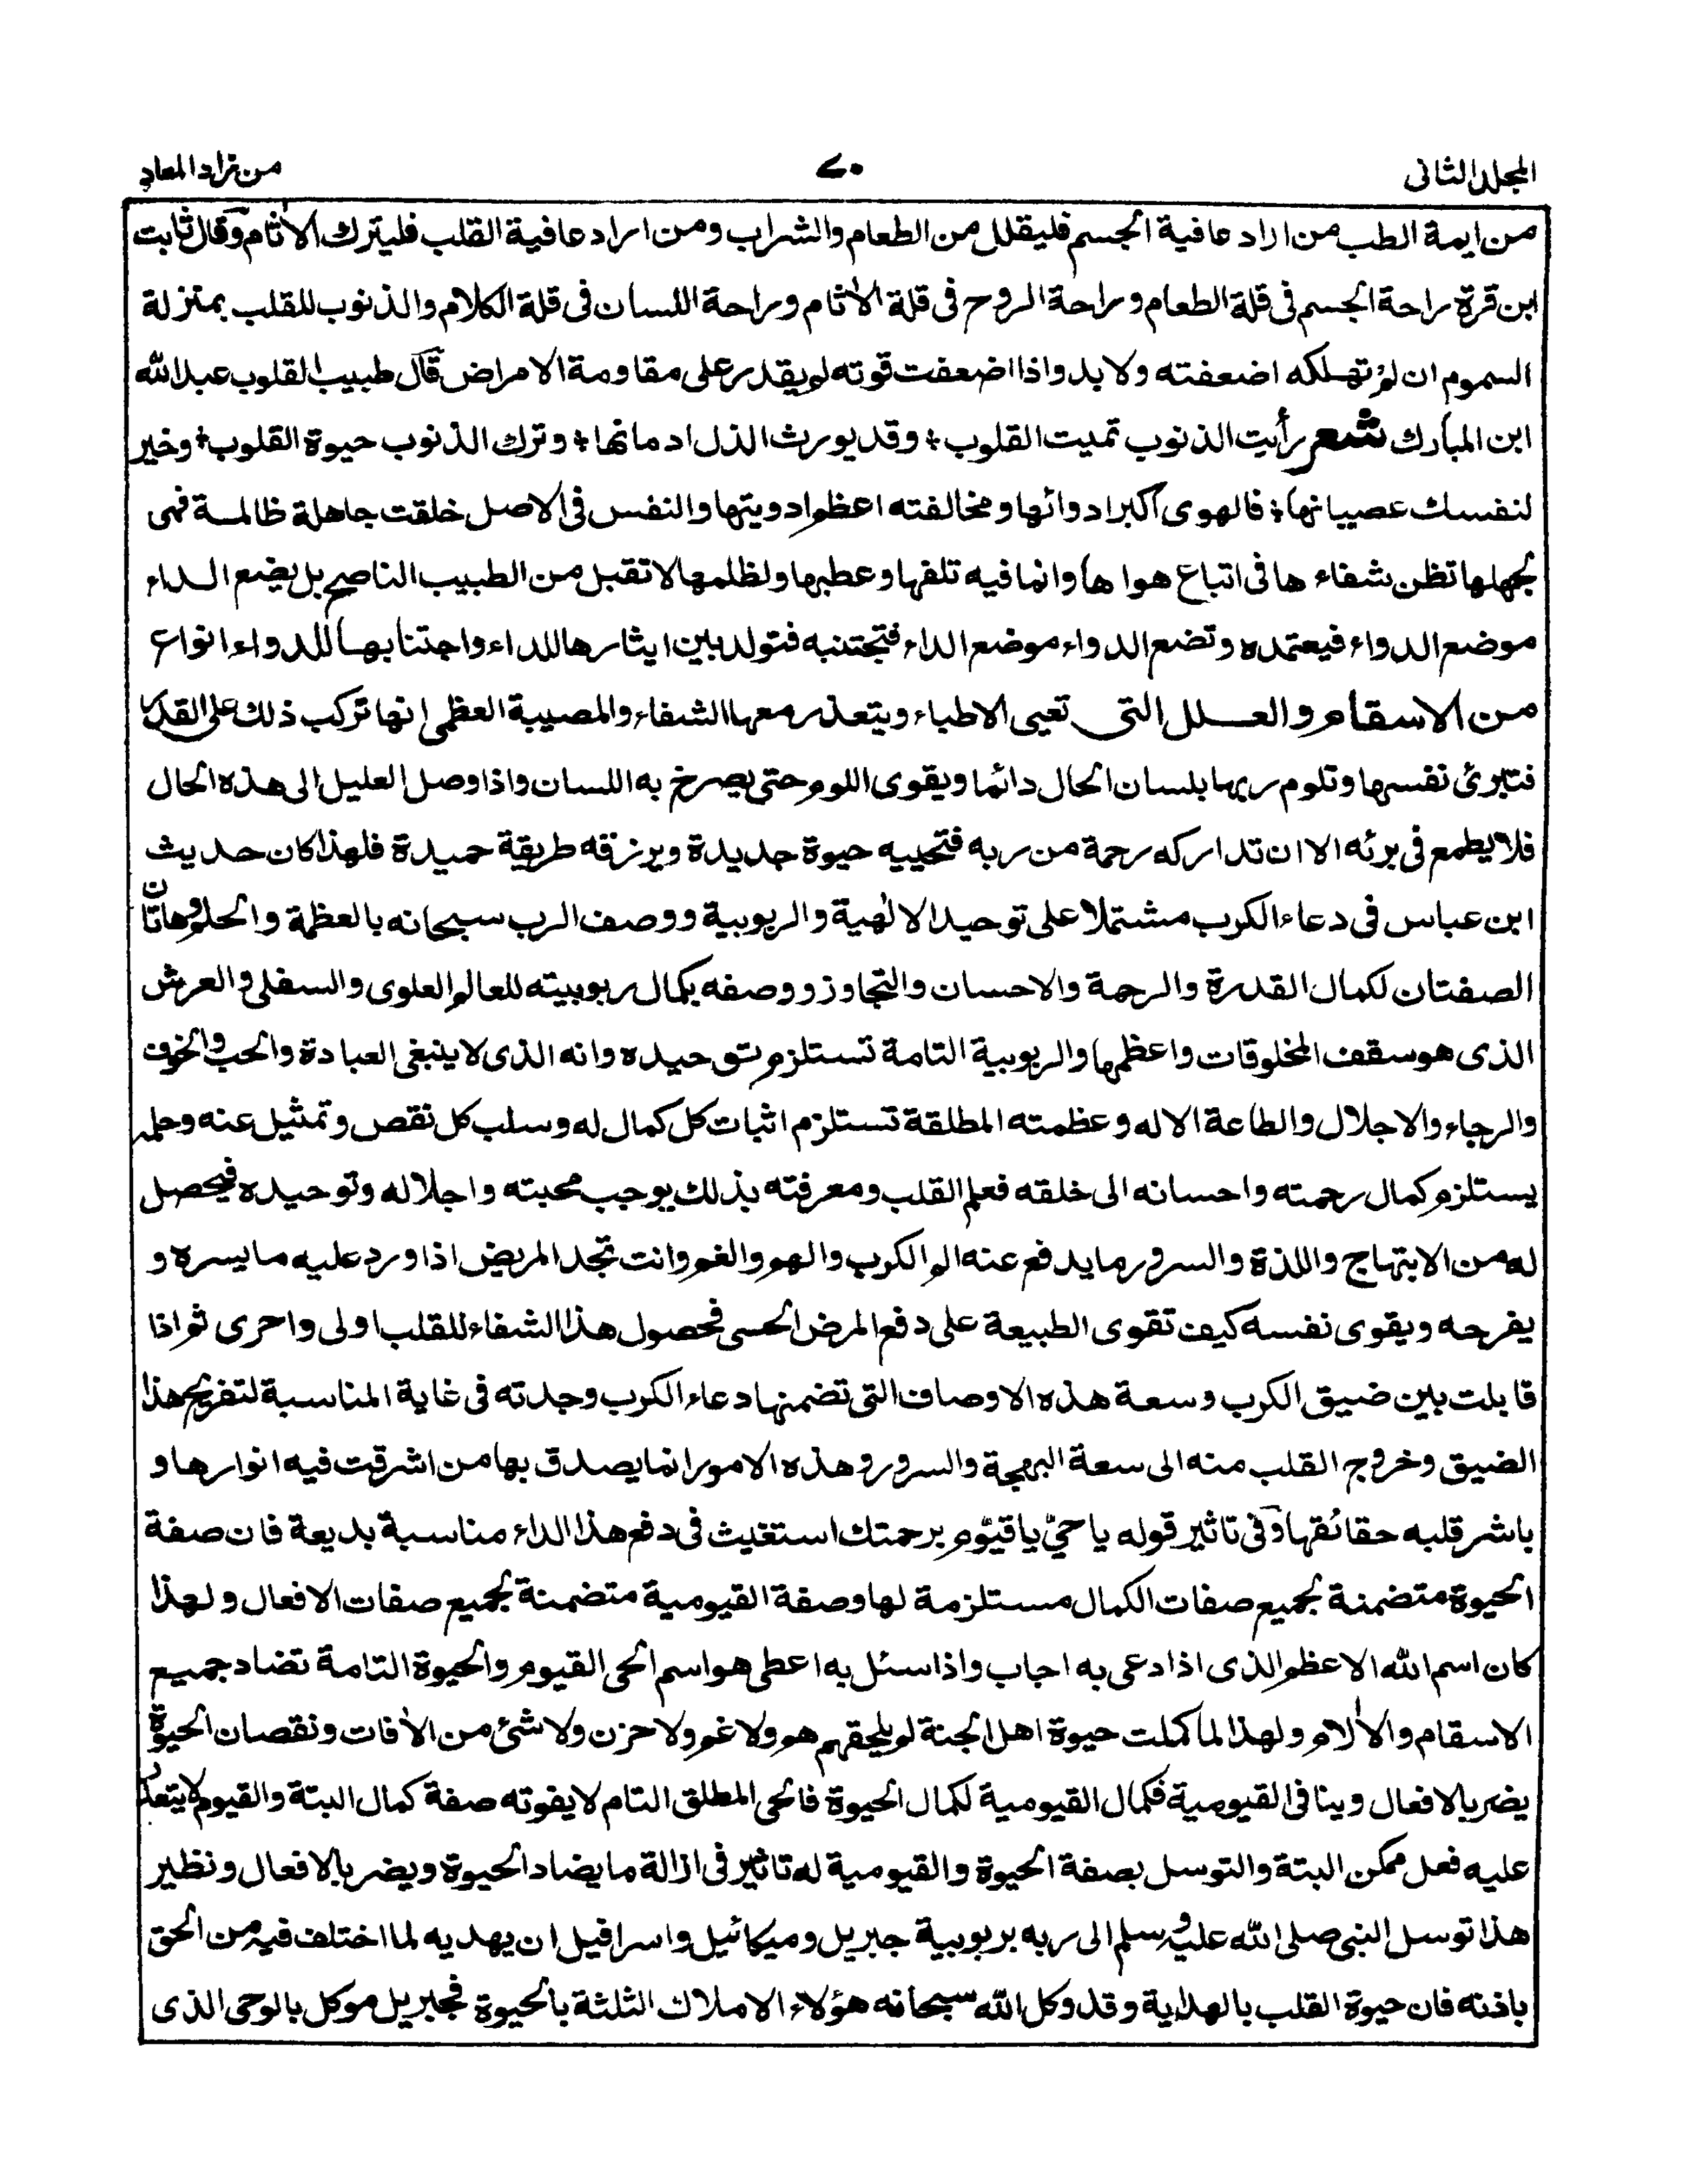 المجلد الثانى
٧٠
من زاد المعاد
من ايمة الطب من اراد عافية الجسم فليقلل من الطعام والشراب ومن اراد عافية القلب فليترك الأثام وقال ثابت
ابن قرة راحة الجسم فى قلة الطعام وراحة الروح فى قلة الأثام وراحة اللسان فى قلة الكلام والذنوب للقلب بمنزلة
السموم ان لم تهلكه اضعفته ولا بد واذا اضعفت قوته لم يقدر على مقاومة الامراض قال طبيب القلوب عبد الله
ابن المبارك شعر رأيت الذنوب تميت القلوب ؛ وقد يورث الذل ادمانها ؛ وترك الذنوب حيوة القلوب ؛ وخير
لنفسك عصيانها ؛ فالهوى اكبر ادوائها ومخالفته اعظم ادويتها والنفس فى الاصل خلقت جاهلة ظالمة فهى
لجهلها تظن شفاءها فى اتباع هواها وانما فيه تلفها وعطبها ولظلمها لا تقبل من الطبيب الناصح بل يضع الداء
موضع الدواء فيعتمده وتضع الدواء موضع الداء فتجتنبه فتولد بين ايثارها للداء واجتنابها للدواء انواع
من الاسقام والعلل التى تعيى الاطباء ويتعذر معها الشفاء والمصيبة العظمى انها تركب ذلك على القدر
فتبرئ نفسها وتلوم ربها بلسان الحال دائما ويقوى اللوم حتى يصرخ به اللسان واذا وصل العليل الى هذه الحال
فلا يطمع فى برئه الا ان تداركه رحمة من ربه فتحييه حيوة جديدة ويرزقه طريقة حميدة فلهذا كان حديث
ابن عباس فى دعاء الكرب مشتملا على توحيد الالهية والربوبية ووصف الرب سبحانه بالعظمة والحلم وهاتان
الصفتان لكمال القدرة والرحمة والاحسان والتجاوز ووصفه بكمال ربوبيته للعالم العلوى والسفلى والعرش
الذى هو سقف المخلوقات واعظمها والربوبية التامة تستلزم توحيده وانه الذى لا ينبغى العبادة والحب والخوف
والرجاء والاجلال والطاعة الا له وعظمته المطلقة تستلزم اثبات كل كمال له وسلب كل نقص وتمثيل عنه وحلمه
يستلزم كمال رحمته واحسانه الى خلقه فعلم القلب ومعرفته بذلك يوجب محبته واجلاله وتوحيده فيحصل
له من الابتهاج واللذة والسرور ما يدفع عنه الم الكرب والهم والغم وانت تجد المريض اذا ورد عليه ما يسره و
يفرحه ويقوى نفسه كيف تقوى الطبيعة على دفع المرض الحسى فحصول هذا الشفاء للقلب اولى واحرى ثم اذا
قابلت بين ضيق الكرب وسعة هذه الاوصاف التى تضمنها دعاء الكرب وجدته فى غاية المناسبة لتفريج هذا
الضيق وخروج القلب منه الى سعة البهجة والسرور وهذه الامور انما يصدق بها من اشرقت فيه انوارها و
باشر قلبه حقائقها وفى تاثير قوله يا حىّ يا قيّوم برحمتك استغيث فى دفع هذا الداء مناسبة بديعة فان صفة
الحيوة متضمنة لجميع صفات الكمال مستلزمة لها وصفة القيومية متضمنة لجميع صفات الافعال ولهذا
كان اسم الله الاعظم الذى اذا دعى به اجاب واذا سئل به اعطى هو اسم الحى القيوم والحيوة التامة تضاد جميع
الاسقام والألام ولهذا لما كملت حيوة اهل الجنة لم يلحقهم هم ولا غم ولا حزن ولا شئ من الأفات ونقصان الحيوة
يضر بالافعال وينافى القيومية فكمال القيومية لكمال الحيوة فالحى المطلق التام لا يفوته صفة كمال البتة والقيوم لا يتعذر
عليه فعل ممكن البتة والتوسل بصفة الحيوة والقيومية له تاثير فى ازالة ما يضاد الحيوة ويضر بالافعال ونظير
هذا توسل النبى صلى الله عليه وسلم الى ربه بربوبية جبريل وميكائيل واسرافيل ان يهديه لما اختلف فيه من الحق
باذنه فان حيوة القلب بالهداية وقد وكل الله سبحانه هؤلاء الاملاك الثلثة بالحيوة فجبريل موكل بالوحى الذى